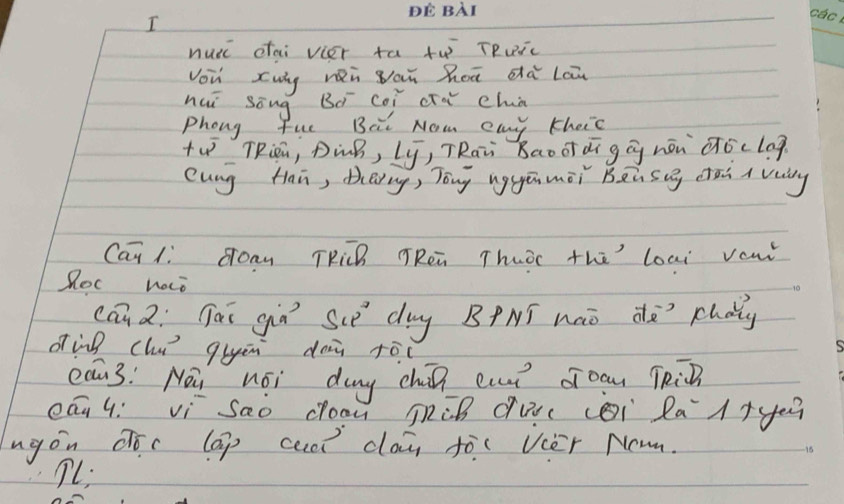 ĐỀ BÀI
các
I
nước đại việt ta từ TRước
vốn xưng nền văn hoá đã Lâu
núi sông Bờ cõi đã chia
Phong tục Bắc Nam cũng khác
từ TRiệu, Đinh, Lý, TRần Bao đời gây nên độc lập
cùng Hán, Đường, Tống nguyên mỗi Bên xưng đế 1 vùng
Câu 1: đoạn TRích TRên Thuộc thể loại văn
học nào
câu 2: Tác giả sử dụng BPNT nào để khẳng
định chủ quyền dân tộc
câu 3: Nêu nội dung chính của đoạn TRích
câu 4: vì sao đoạn TRích được coi là 1 tuyên
ngôn độc lập của dân tộc Việt Nam.
TL: